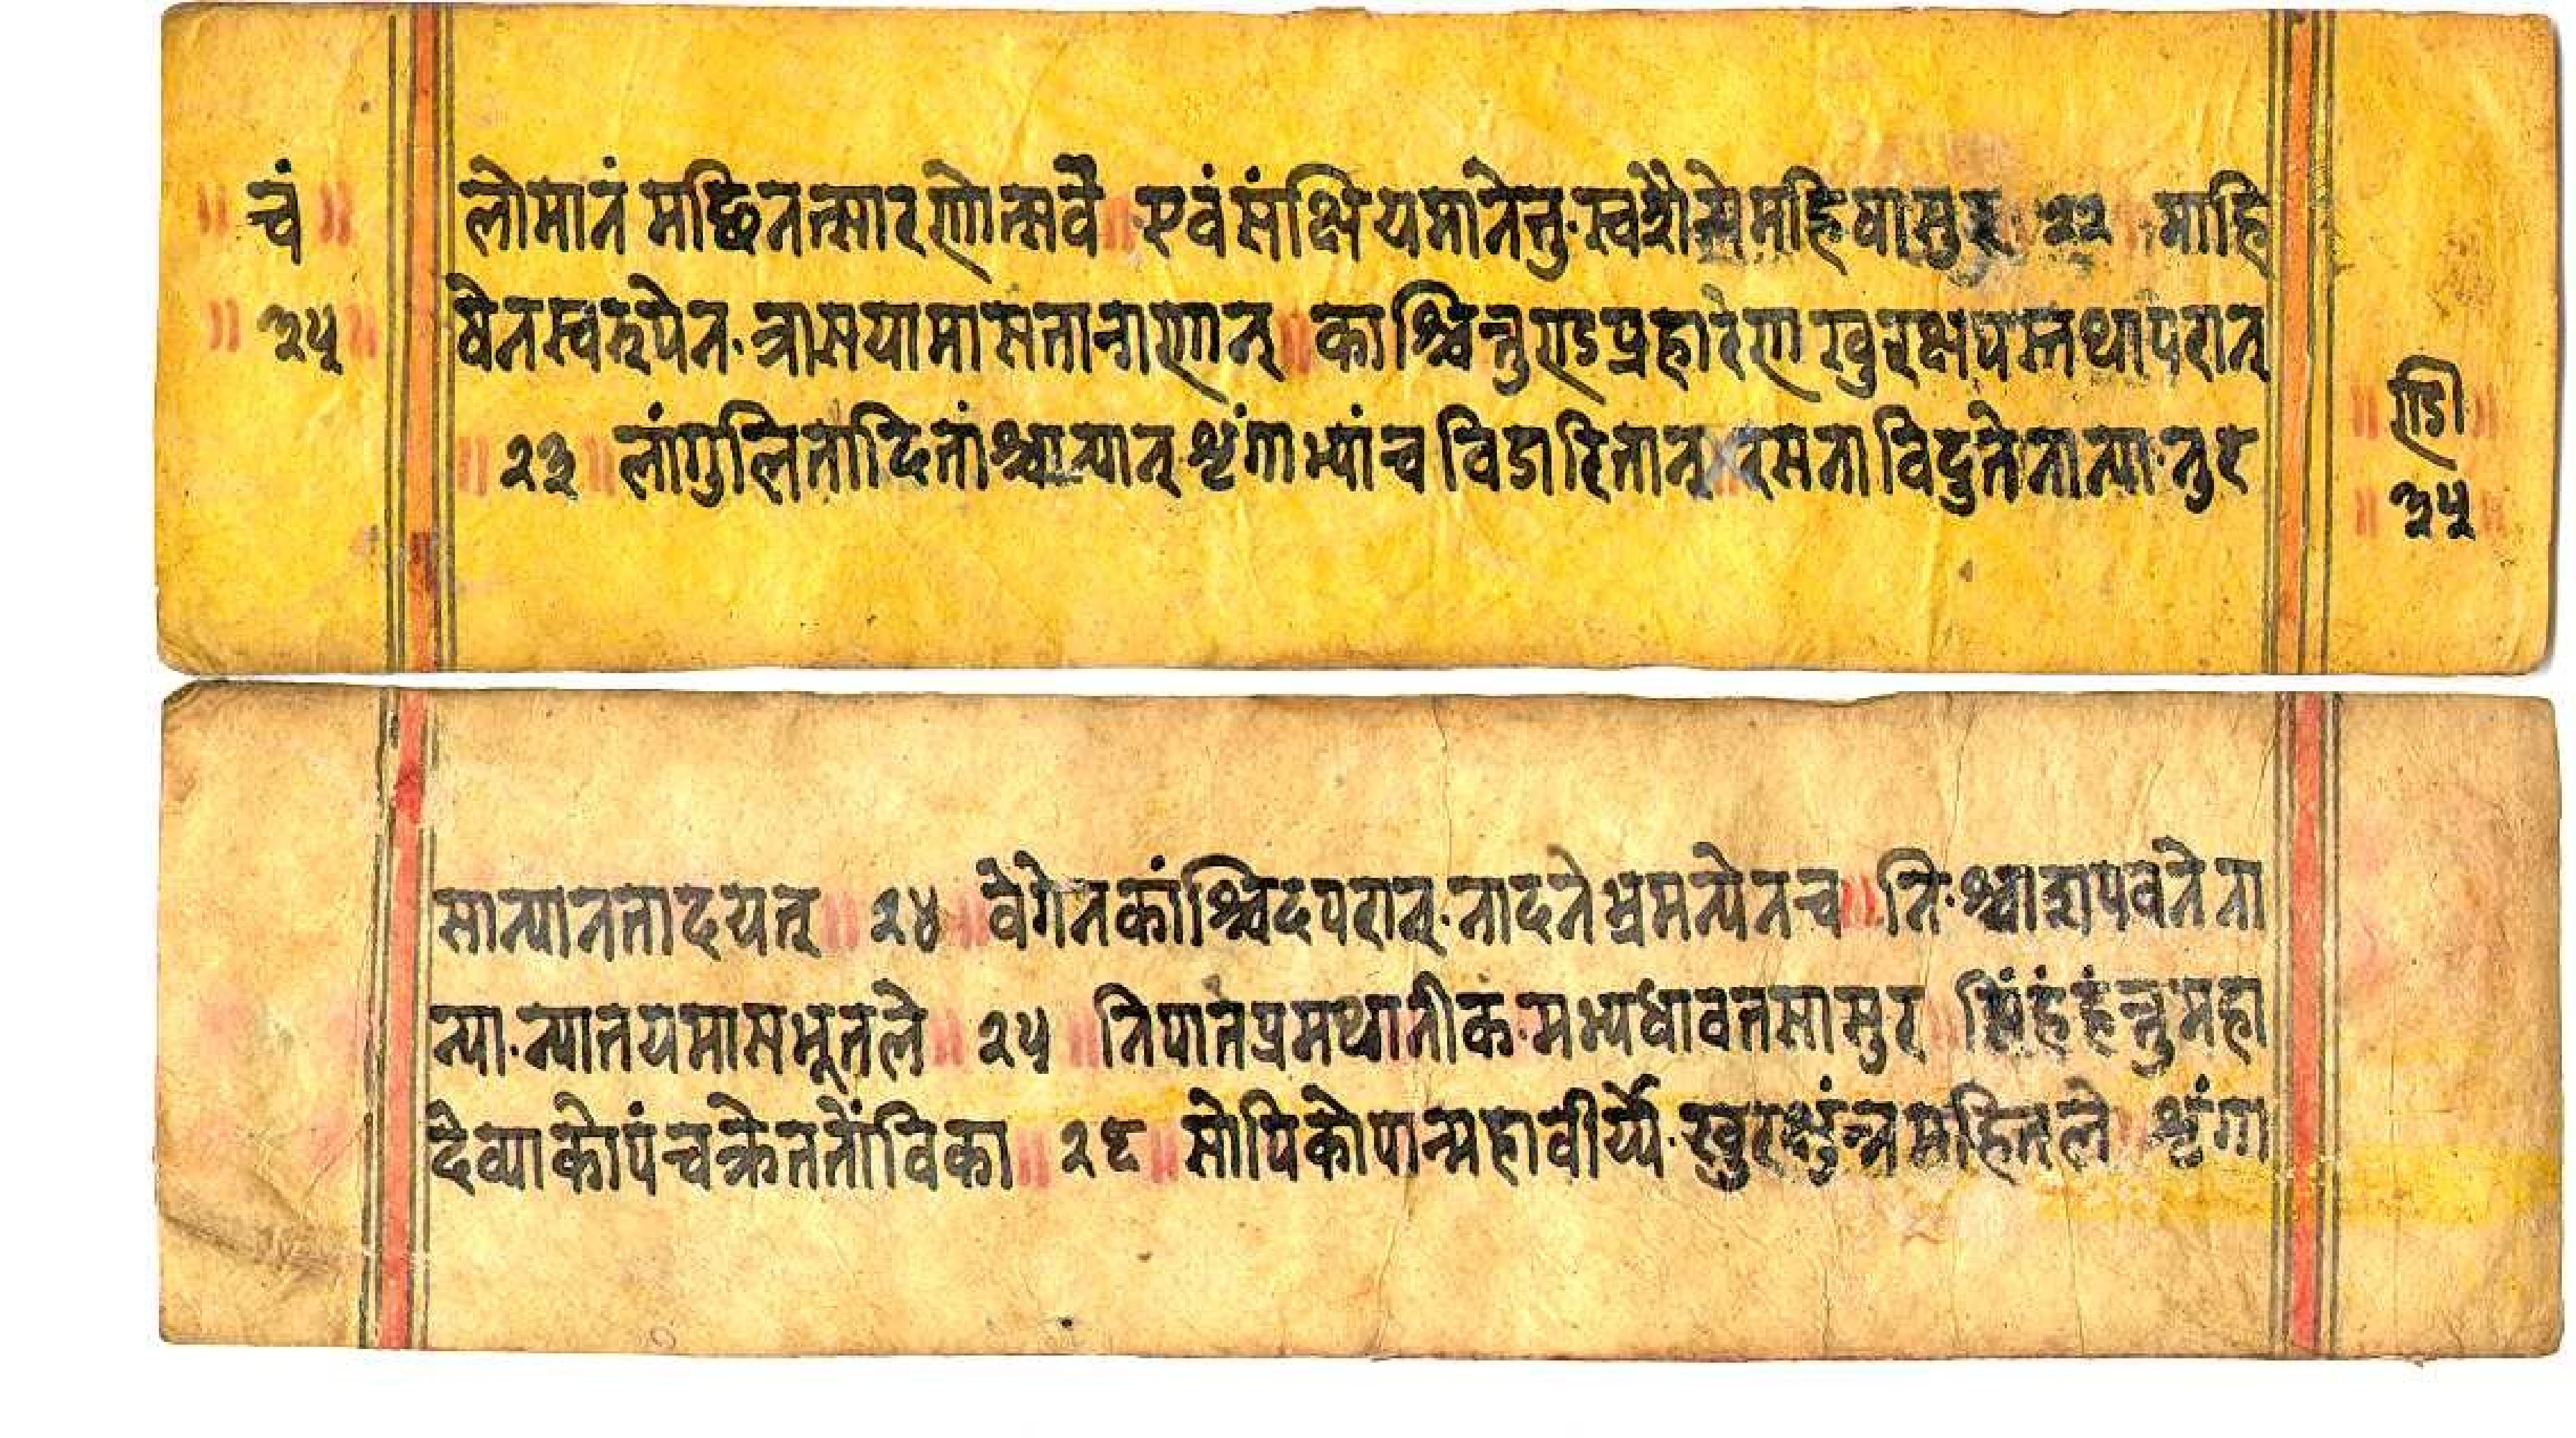 चं
३५
लोमानं मछिनत्सारणोत्सवै ॥ एवं संक्षियमानेनु·स्वशैन्येमहिषासुर ॥ २२ ॥ माहि
षेनस्वरुपेन·त्रासयामासतानाणान् ॥ काश्चिन्तुण्डप्रहारेण खुरक्षपस्तथापरान्
॥ २३ ॥ लांगुलितादितांश्चान्यान्·शृंगाभ्यांच विडारितान् ॥ रसना विदुतेनान्या·नुर
ण्डि
३५
सान्यानतादयत् ॥ २४ ॥ वेगेनकांश्चिदपरान्·नादनेभ्रमन्येनच ॥ नि·श्वाशपवनेना
न्या·न्यातयमासभूतले ॥ २५ ॥ निपातप्रमथानीक·मभ्यधावतसासुर ॥ सिंहंहंन्तुमहा
देव्याकोपंचक्रेततोंविका ॥ २६ ॥ सोपिकोपान्महावीर्य्ये·खुरक्षुंन्नमहितले ॥ शृंगा